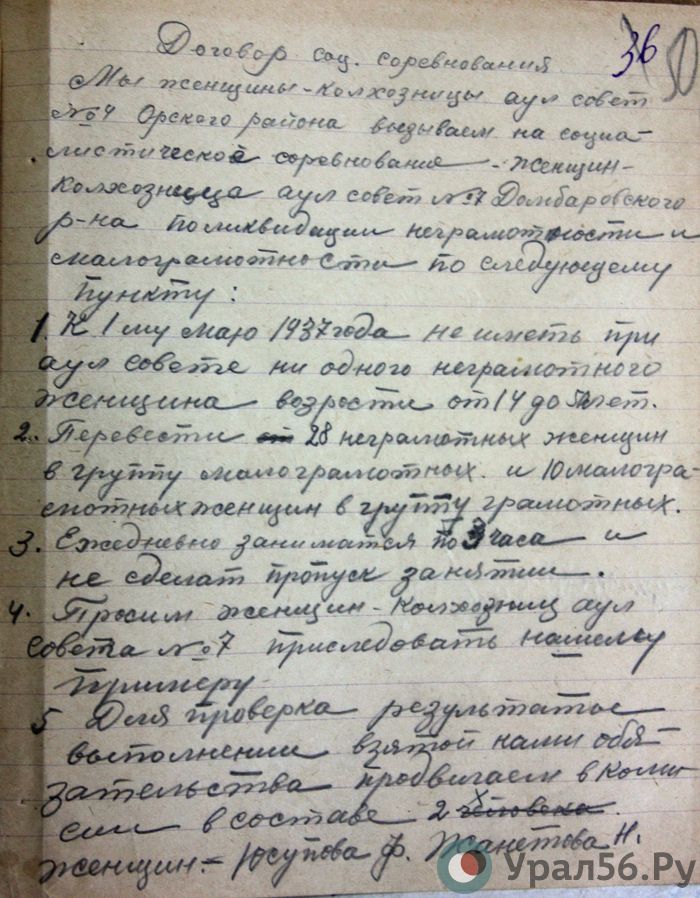 36
50
Договор соц. соревнования
Мы женщины-колхозницы аул совет
№4 Орского района вызываем на социа-
листическое соревнование - женщин-
колхозница аул совет №7 Домбаровского
р-на поликвидации неграмотности и
малограмотности по следующему
пункту:
1. К 1 му маю 1937 года не иметь при
аул совете ни одного неграмотного
женщина возрости от 14 до лет.
2. Перевести от 28 неграмотных женщин
в группу малограмотных. и 10 малогра-
мотных женщин в группу грамотных.
3. Ежедневно заниматся по 3 часа и
не сделат пропуск занятии.
4. Просим женщин-колхозниц аул
совета №7 приследовать нашему
примеру
5 Для проверка результатов
выполнении взятой нами обя-
зательства продвигаем в коми
сии в составе 2х человека.
женщин. - Юсупова Ф. Жанетова Н.
Урал56.Ру